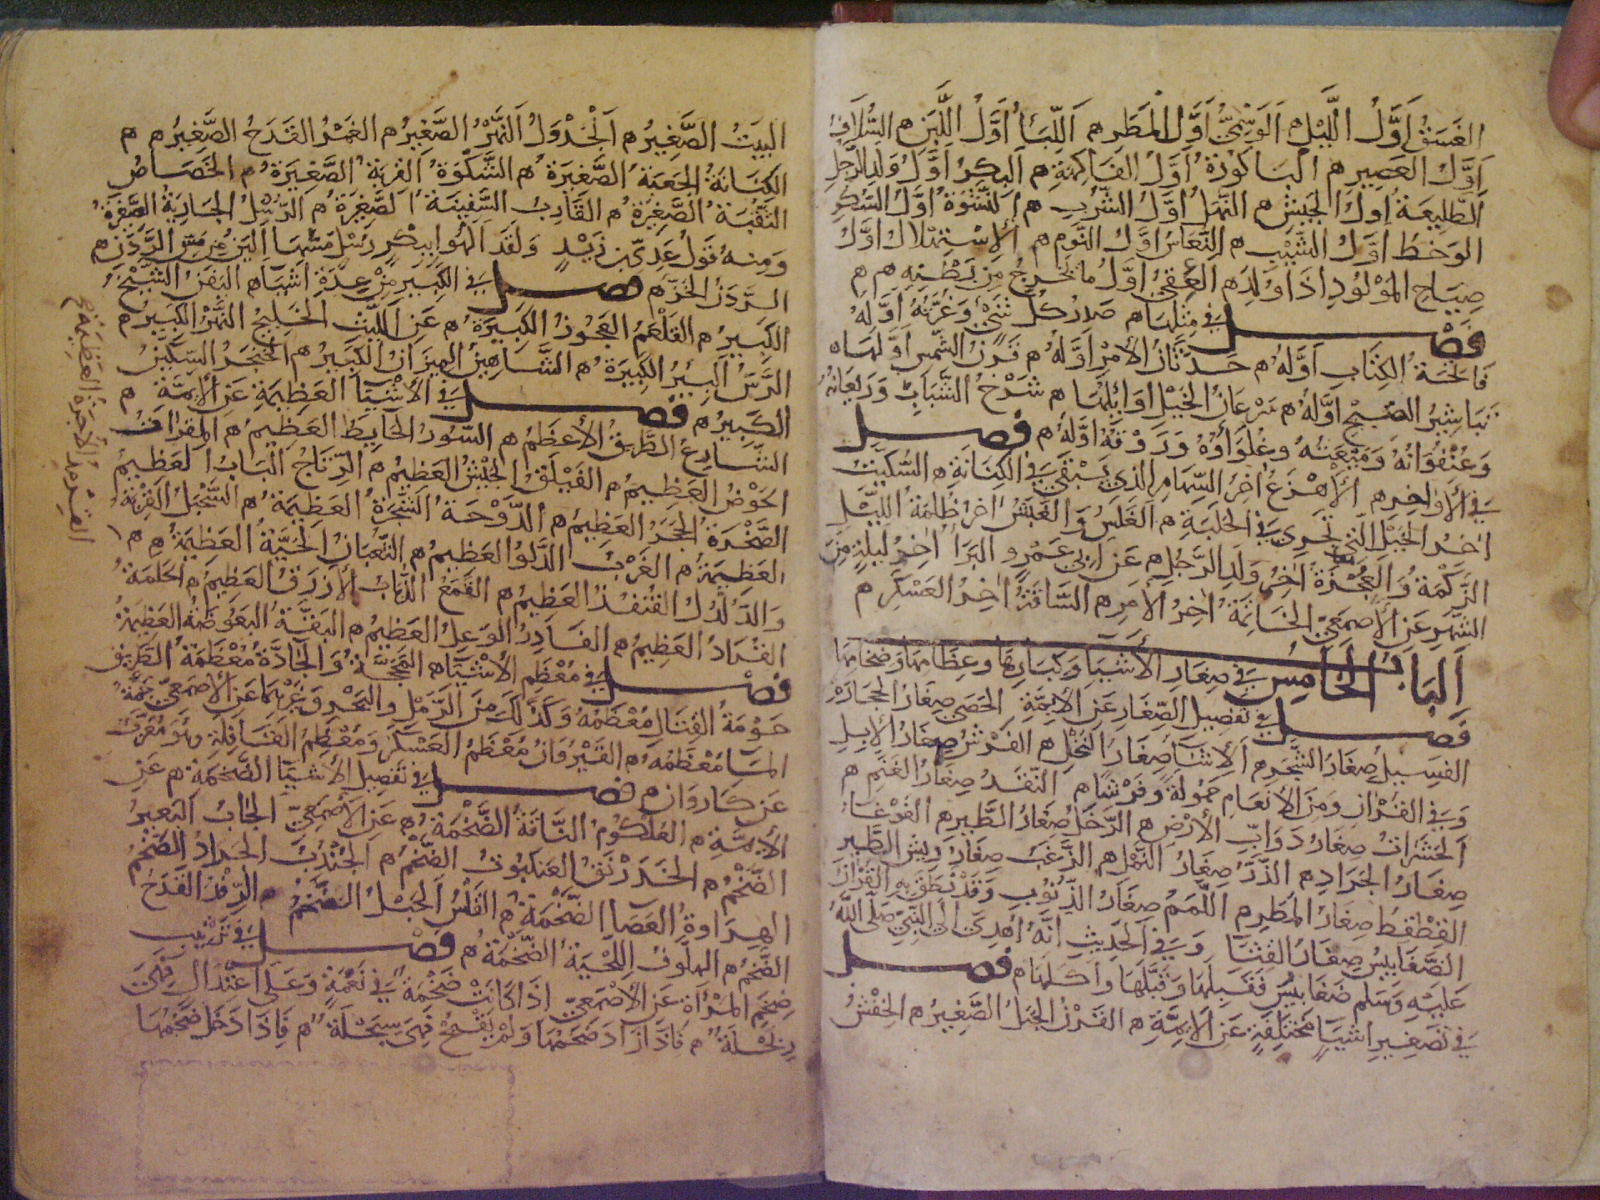 الغَسَقُ أَوَّلُ اللَّيْلِ ۞ الوَسْمِيُّ أَوَّلُ المَطَرِ ۞ اللِّبَأُ أَوَّلُ اللَّبَنِ ۞ السُّلَافُ
أَوَّلُ العَصِيرِ ۞ البَاكُورَةُ أَوَّلُ الفَاكِهَةِ ۞ البِكْرُ أَوَّلُ وَلَدِ الرَّجُلِ
الطَّلِيعَةُ أَوَّلُ الجَيْشِ ۞ النَّهَلُ أَوَّلُ الشُّرْبِ ۞ النَّشْوَةُ أَوَّلُ السُّكْرِ
الوَخْطُ أَوَّلُ الشَّيْبِ ۞ النُّعَاسُ أَوَّلُ النَّوْمِ ۞ الاسْتِهْلَالُ أَوَّلُ
صِيَاحِ المَوْلُودِ إِذَا وُلِدَ ۞ العِقْيُ أَوَّلُ مَا يَخْرُجُ مِنْ بَطْنِهِ ۞ ۞
فَصْلٌ فِي مِثْلِهَا ۞ صَدْرُ كُلِّ شَيْءٍ وَغُرَّتُهُ أَوَّلُهُ
فَاتِحَةُ الكِتَابِ أَوَّلُهُ ۞ حَدَثَانُ الأَمْرِ أَوَّلُهُ ۞ قَرْنُ الشَّمْسِ أَوَّلُهَا ۞
تَبَاشِيرُ الصُّبْحِ أَوَّلُهُ ۞ سَرَعَانُ الخَيْلِ أَوَائِلُهَا ۞ شَرْخُ الشَّبَابِ وَرَيْعَانُهُ
وَعُنْفُوَانُهُ وَمَيْعَتُهُ وَغُلَوَاؤُهُ وَرَوْقُهُ أَوَّلُهُ ۞ فَصْلٌ
فِي الأَوَاخِرِ ۞ الأَهْزَعُ آخِرُ السِّهَامِ الَّذِي يَبْقَى فِي الكِنَانَةِ ۞ السُّكَيْتُ
آخِرُ الخَيْلِ الَّتِي تَجْرِي فِي الحَلْبَةِ ۞ الغَلَسُ وَالغَبَشُ آخِرُ ظُلْمَةِ اللَّيْلِ
الزُّكْمَةُ وَالعُجْزَةُ آخِرُ وَلَدِ الرَّجُلِ ۞ عَنْ أَبِي عَمْرٍو البَرَاءُ آخِرُ لَيْلَةٍ مِنَ
الشَّهْرِ عَنِ الأَصْمَعِيِّ الخَاتِمَةُ آخِرُ الأَمْرِ ۞ السَّاقَةُ آخِرُ العَسْكَرِ ۞
البَابُ الخَامِسُ فِي صِغَارِ الأَشْيَاءِ وَكِبَارِهَا وَعِظَامِهَا وَضِخَامِهَا
فَصْلٌ فِي تَفْصِيلِ الصِّغَارِ عَنِ الأَئِمَّةِ الحَصَى صِغَارُ الحِجَارَةِ
الفَسِيلُ صِغَارُ الشَّجَرِ ۞ الأَشَاءُ صِغَارُ النَّخْلِ ۞ الفَرْشُ صِغَارُ الإِبِلِ
وَفِي القُرْآنِ وَمِنَ الأَنْعَامِ حَمُولَةً وَفَرْشًا ۞ النَّقَدُ صِغَارُ الغَنَمِ ۞
الحَشَرَاتُ صِغَارُ دَوَابِّ الأَرْضِ ۞ الدُّخَّلُ صِغَارُ الطَّيْرِ ۞ الغَوْغَاءُ
صِغَارُ الجَرَادِ ۞ الذَّرُّ صِغَارُ النَّمْلِ ۞ الزَّغَبُ صِغَارُ رِيشِ الطَّيْرِ
القِطْقِطُ صِغَارُ المَطَرِ ۞ اللَّمَمُ صِغَارُ الذُّنُوبِ وَقَدْ نَطَقَ بِهِ القُرْآنُ
الضَّغَابِيسُ صِغَارُ القِثَّاءِ وَفِي الحَدِيثِ أَنَّهُ أُهْدِيَ إِلَى النَّبِيِّ صَلَّى اللَّهُ
عَلَيْهِ وَسَلَّمَ ضَغَابِيسُ فَقَبِلَهَا وَقَبَّلَهَا وَأَكَلَهَا ۞ فَصْلٌ
فِي تَصْغِيرِ أَشْيَاءَ مُخْتَلِفَةٍ عَنِ الأَئِمَّةِ ۞ القَرْنُ الجَبَلُ الصَّغِيرُ ۞ الحِفْشُ
البَيْتُ الصَّغِيرُ ۞ الجَدْوَلُ النَّهْرُ الصَّغِيرُ ۞ الغُمَرُ القَدَحُ الصَّغِيرُ ۞ ۞
الكِنَانَةُ الجَعْبَةُ الصَّغِيرَةُ ۞ الشَّكْوَةُ القِرْبَةُ الصَّغِيرَةُ ۞ الخَصَاصُ
النُّقْبَةُ الصَّغِيرَةُ ۞ القَارِبُ السَّفِينَةُ الصَّغِيرَةُ ۞ الرُّسْلُ الجَارِيَةُ الصَّغِيرَةُ
وَمِنْهُ قَوْلُ عَدِيِّ بْنِ زَيْدٍ وَلَقَدْ أَلْهُو بِبِكْرٍ رُسُلٍ مَسُّهَا أَلْيَنُ مِنْ مَسِّ الرَّدَنِ ۞
الرَّدَنُ الخَزُّ ۞ فَصْلٌ فِي الكَبِيرِ مِنْ عِدَّةِ أَشْيَاءَ ۞ الشَّيْخُ
الكَبِيرُ ۞ القَلْعَمُ العَجُوزُ الكَبِيرَةُ ۞ عَنِ اللَّيْثِ الخَلِيجُ النَّهْرُ الكَبِيرُ ۞
الرَّسُّ البِئْرُ الكَبِيرَةُ ۞ الشَّاهِينُ المِيزَانُ الكَبِيرُ ۞ الخَنْجَرُ السِّكِّينُ
الكَبِيرُ ۞ فَصْلٌ فِي الأَشْيَاءِ العَظِيمَةِ عَنِ الأَئِمَّةِ ۞
الشَّارِعُ الطَّرِيقُ الأَعْظَمُ ۞ السُّورُ الحَائِطُ العَظِيمُ ۞ المِقْرَاةُ
الحَوْضُ العَظِيمُ ۞ الفَيْلَقُ الجَيْشُ العَظِيمُ ۞ الرِّتَاجُ البَابُ العَظِيمُ
الصَّخْرَةُ الحَجَرُ العَظِيمُ ۞ الدَّوْحَةُ الشَّجَرَةُ العَظِيمَةُ ۞ السَّجِيلُ القِرْبَةُ
العَظِيمَةُ ۞ الغَرْبُ الدَّلْوُ العَظِيمُ ۞ الثُّعْبَانُ الحَيَّةُ العَظِيمَةُ ۞ ۞
وَالدُّلْدُلُ القُنْفُذُ العَظِيمُ ۞ القَمَعُ الذُّبَابُ الأَزْرَقُ العَظِيمُ ۞ الحَلَمَةُ
القُرَادُ العَظِيمُ ۞ الفَادِرُ الوَعِلُ العَظِيمُ ۞ البَقَّةُ البَعُوضَةُ العَظِيمَةُ
فَصْلٌ فِي مُعْظَمِ الأَشْيَاءِ ۞ المَحَجَّةُ وَالجَادَّةُ مُعْظَمَةُ الطَّرِيقِ
حَوْمَةُ القِتَالِ مُعْظَمُهُ وَكَذَلِكَ مِنَ الرَّمْلِ وَالبَحْرِ وَغَيْرِهِمَا عَنِ الأَصْمَعِيِّ جَمَّةُ
المَاءِ مُعْظَمُهُ ۞ القَيْرَوَانُ مُعْظَمُ العَسْكَرِ وَمُعْظَمُ القَافِلَةِ وَهُوَ مُعَرَّبٌ
عَنْ كَارَوَانَ ۞ فَصْلٌ فِي تَفْصِيلِ الأَشْيَاءِ الضَّخْمَةِ ۞ عَنِ
الأَئِمَّةِ ۞ العُلْكُومُ النَّاقَةُ الضَّخْمَةُ ۞ عَنِ الأَصْمَعِيِّ الجَأْبُ البَعِيرُ
الضَّخْمُ ۞ الخَدَرْنَقُ العَنْكَبُوتُ الضَّخْمُ ۞ الجُنْدُبُ الجَرَادُ الضَّخْمُ
الهِرَاوَةُ العَصَا الضَّخْمَةُ ۞ القَلْسُ الحَبْلُ الضَّخْمُ ۞ الرِّفْدُ القَدَحُ
الضَّخْمُ ۞ الهِلَّوْفُ اللِّحْيَةُ الضَّخْمَةُ ۞ فَصْلٌ فِي تَرْتِيبِ
ضِخَمِ المَرْأَةِ عَنِ الأَصْمَعِيِّ إِذَا كَانَتْ ضَخْمَةً فِي نَعْمَةٍ وَعَلَى اعْتِدَالٍ فَهِيَ
رِبَحْلَةٌ ۞ فَإِذَا زَادَ ضِخَمُهَا وَلَمْ يَقْبُحْ فَهِيَ سِبَحْلَةٌ ۞ فَإِذَا دَخَلَ ضِخَمُهَا
الآجُرَّةُ العَظِيمَةُ